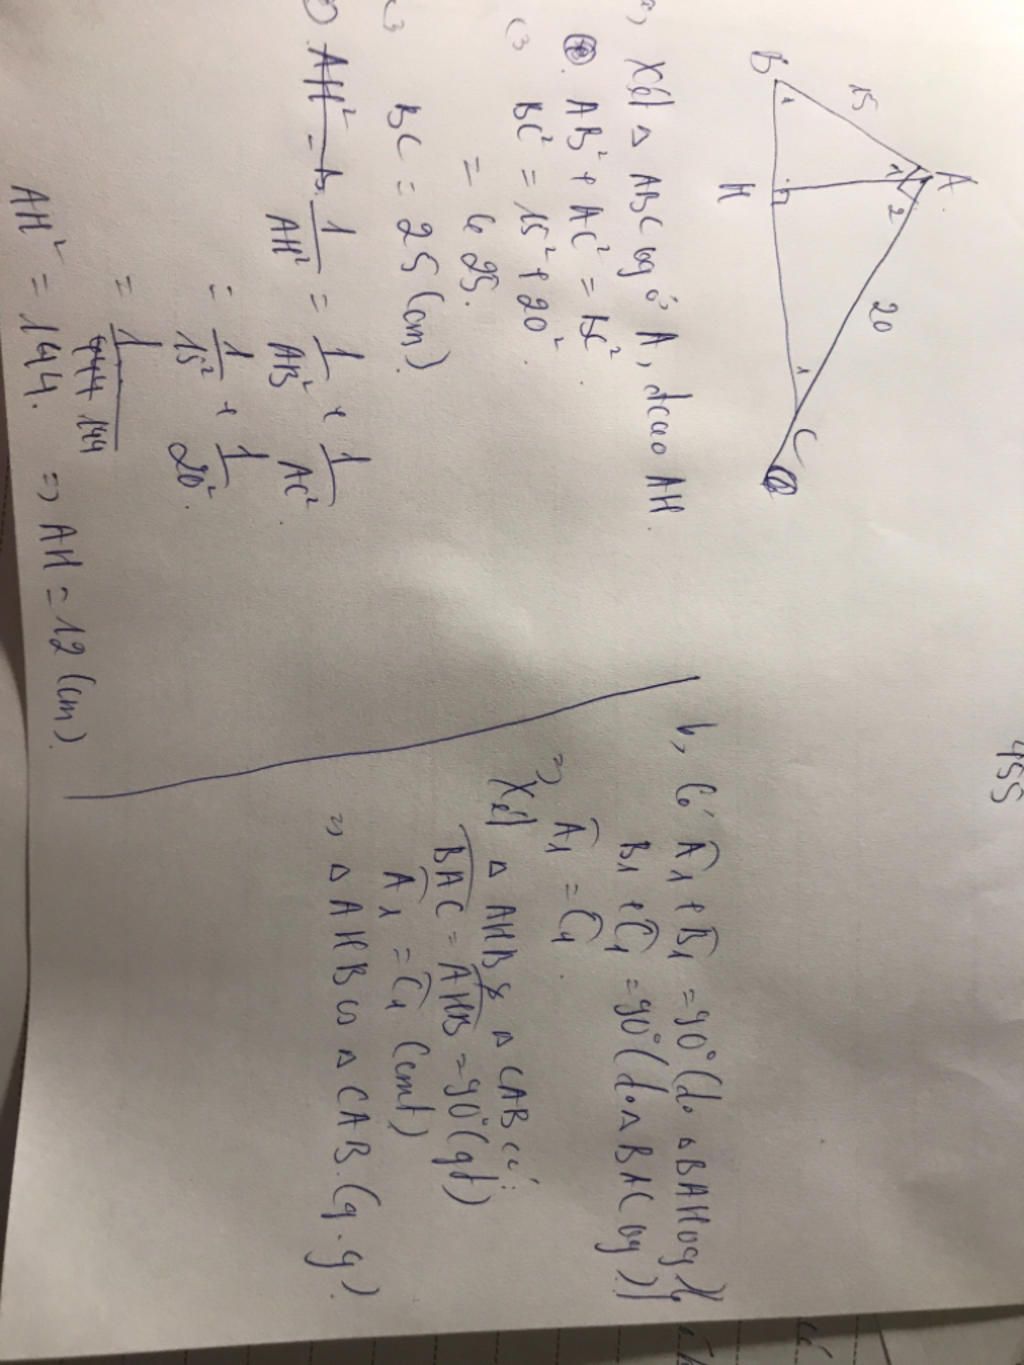 455
A
15
20
1
2
B
1
H
1
C
a, Xét △ ABC vg ở A, đcao AH.
AB² + AC² = BC²
(=) BC² = 15² + 20²
= 625.
(=) BC = 25 (cm)
AH² = 1/AH² = 1/AB² + 1/AC².
= 1/15² + 1/20².
= 1/144
AH² = 144. => AH = 12 (cm).
b, Có Â1 + B̂1 = 90° (do △BAH vg)
B1 + Ĉ1 = 90° (do △ BAC vg)
=> Â1 = Ĉ1.
Xét △ AHB & △ CAB có:
BAC = AHB = 90° (gt)
Â1 = Ĉ1 (cmt)
=> △ AHB ∽ △ CAB. (g.g)